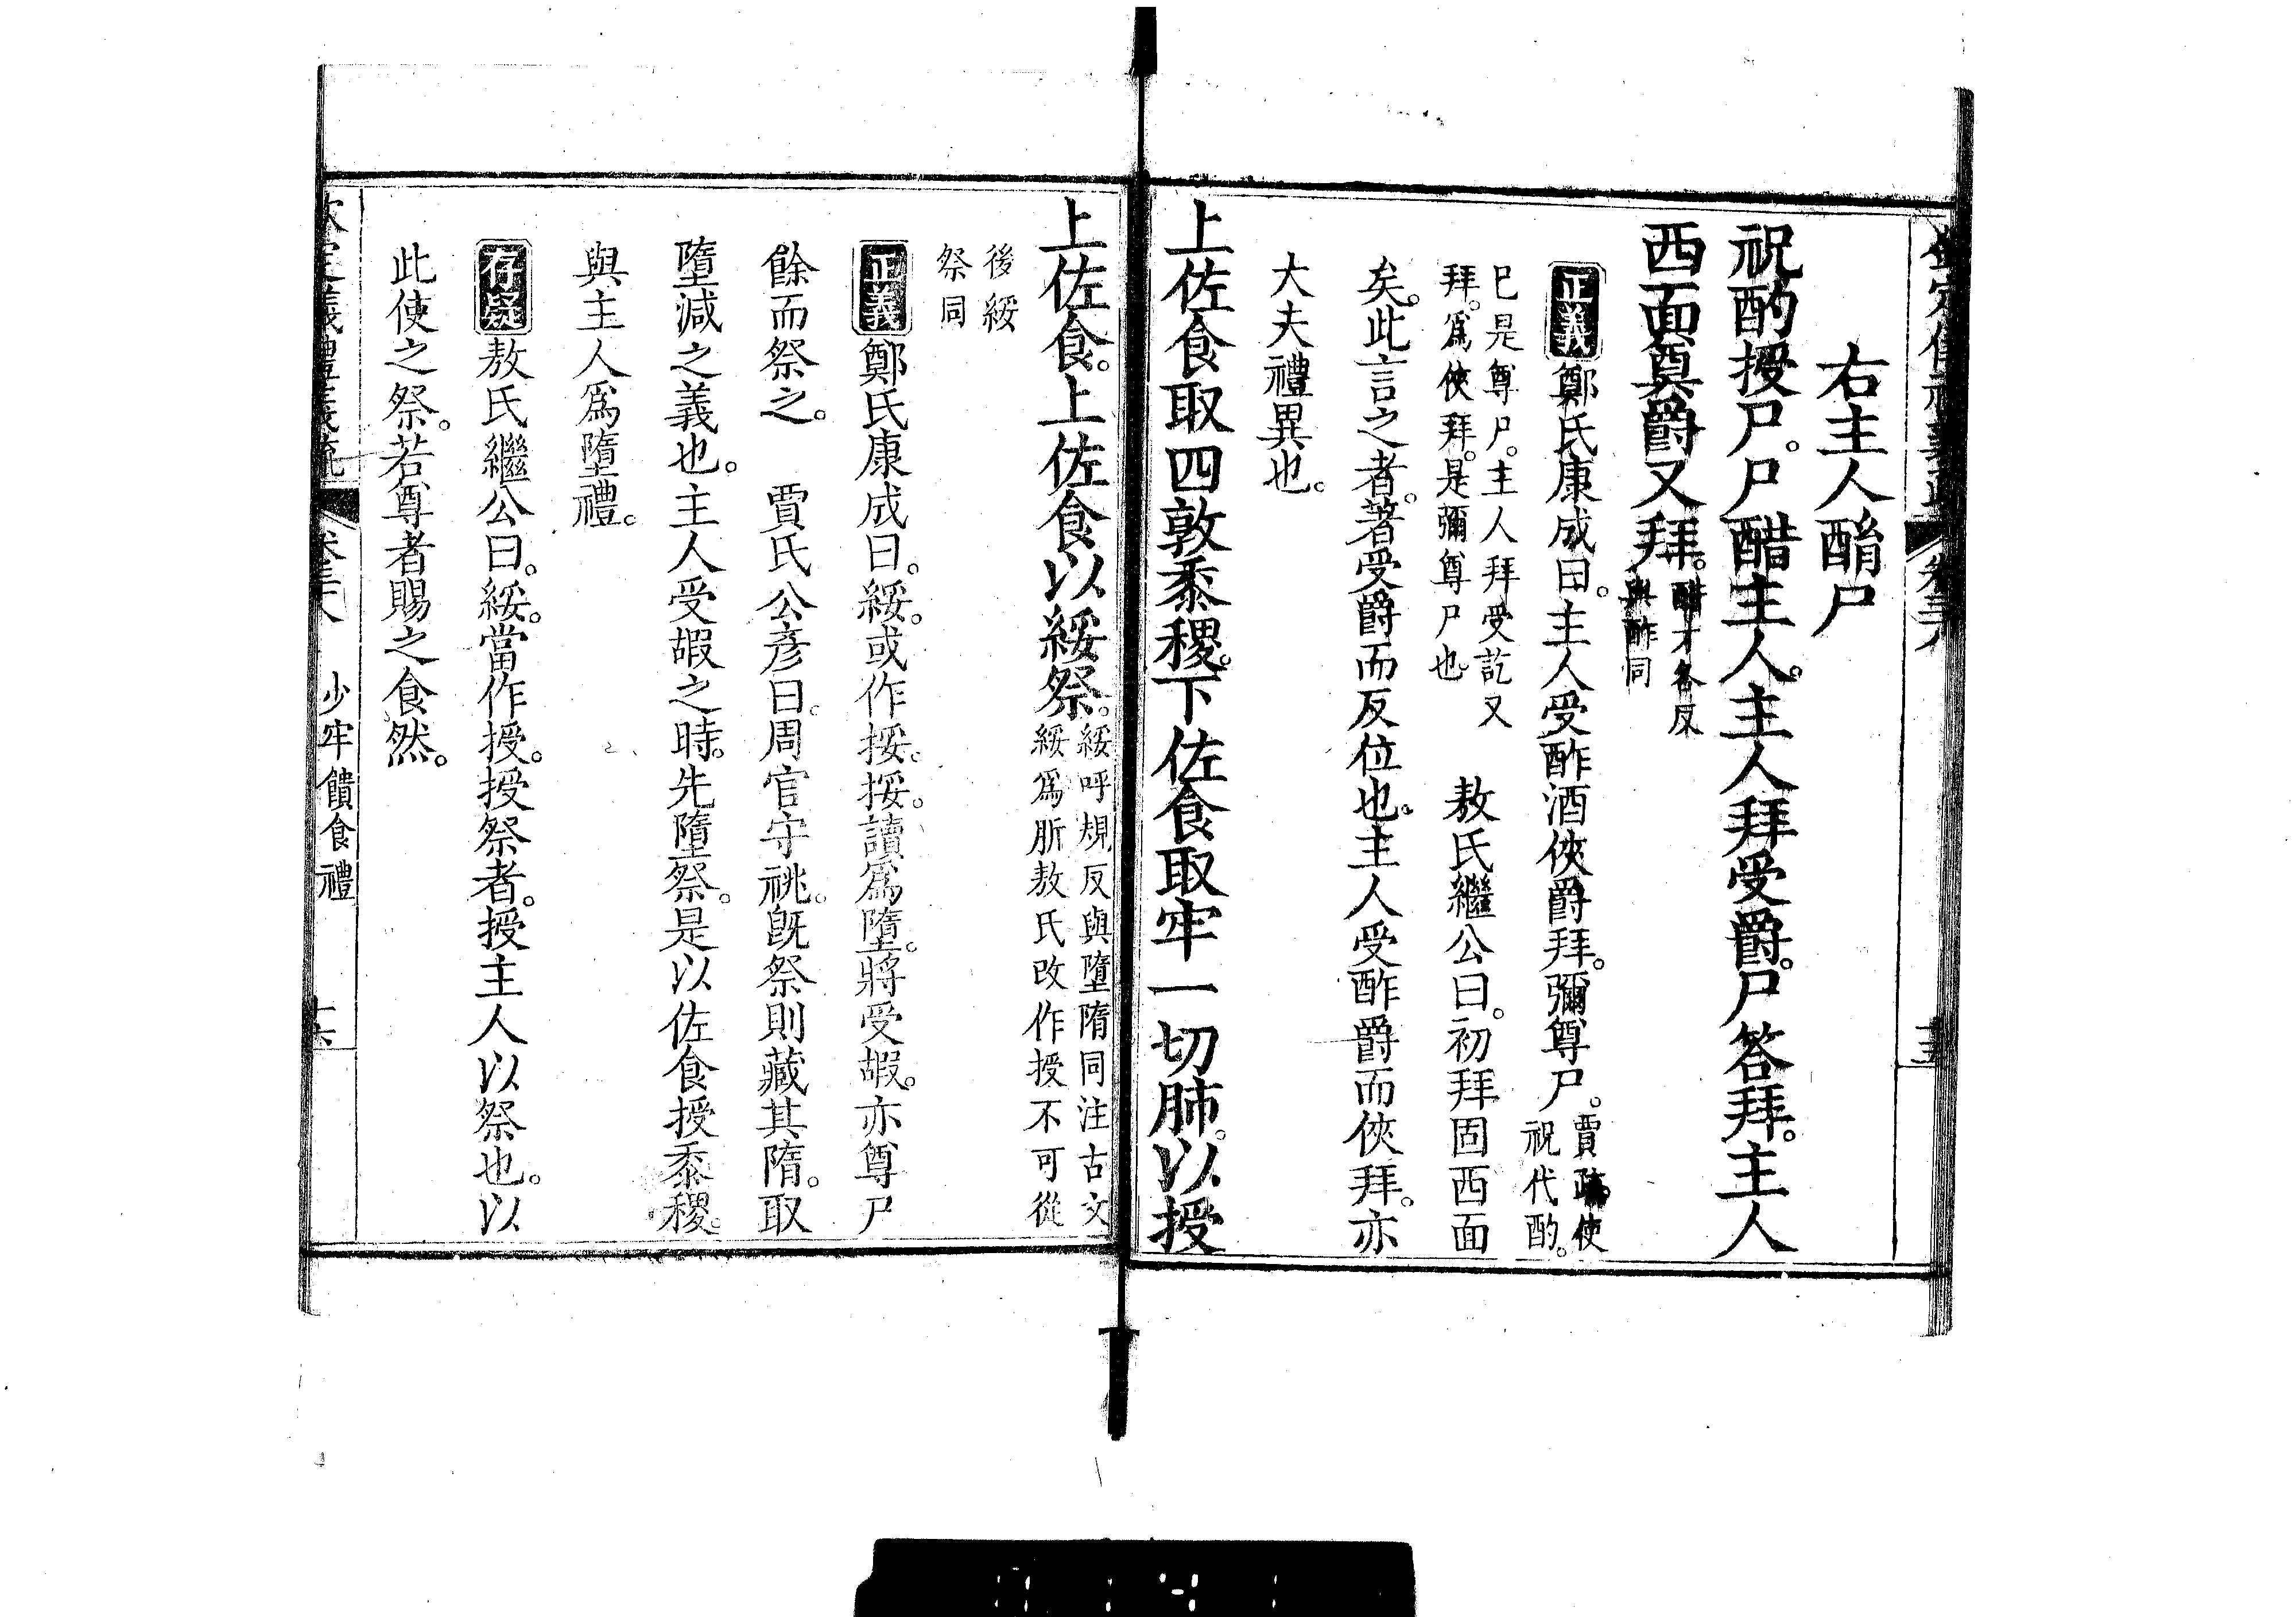 右主人酳尸
祝酌授尸。尸醋主人。主人拜受爵。尸答拜。主人
西面奠爵又拜。醋才各反
與酢同
正義鄭氏康成曰。主人受酢酒俠爵拜。彌尊尸。賈疏使
祝代酌。
已是尊尸。主人拜受訖又
拜。爲俠拜。是彌尊尸也
敖氏繼公曰。初拜固西面
矣。此言之者。著受爵而反位也。主人受酢爵而俠拜。亦
大夫禮異也。
上佐食取四敦黍稷。下佐食取牢一切肺。以授
上佐食。上佐食以綏祭。綏呼規反與墮隋同注古文
綏爲肵敖氏改作授不可從
後綏
祭同
正義鄭氏康成曰。綏。或作挼。挼。讀爲墮。將受嘏。亦尊尸
餘而祭之。 賈氏公彦曰。周官守祧。既祭則藏其隋。取
墮減之義也。主人受嘏之時。先墮祭。是以佐食授黍稷。
與主人爲墮禮。
存疑敖氏繼公曰。綏。當作授。授祭者。授主人以祭也。以
此使之祭。若尊者賜之食然。
少牢饋食禮